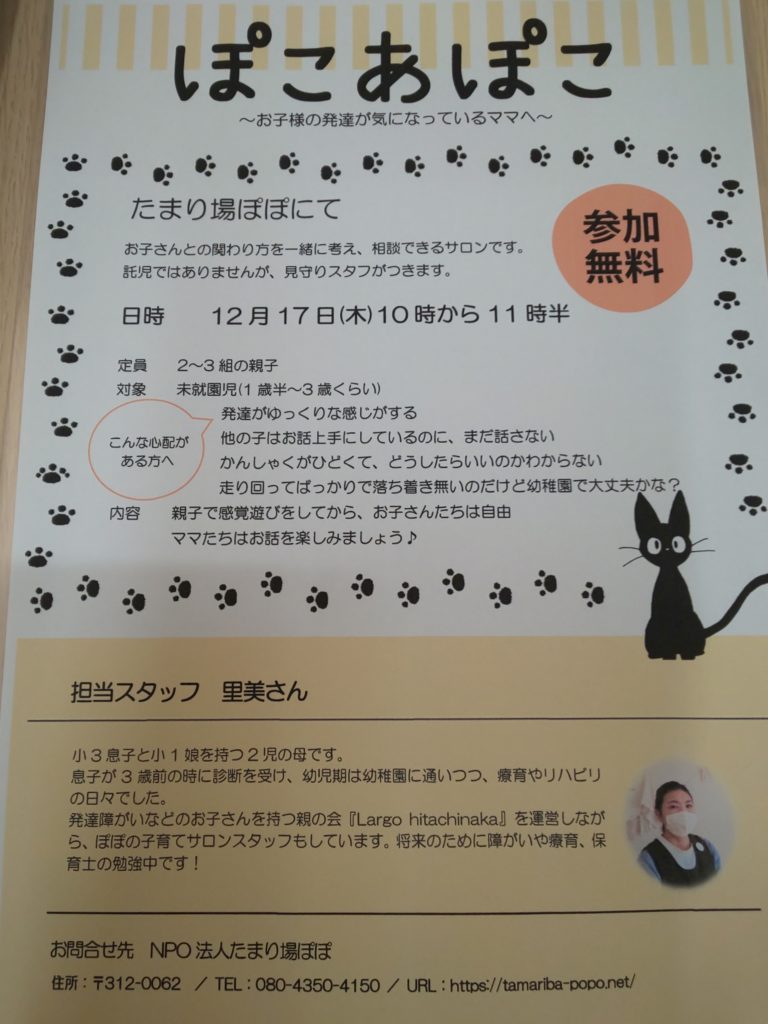 ぽこあぽこ
～お子様の発達が気になっているママへ～
たまり場ぽぽにて
お子さんとの関わり方を一緒に考え、相談できるサロンです。
託児ではありませんが、見守りスタフがつきます。
参加
無料
日時 12月17日(木)10時から11時半
定員 2～3組の親子
対象 未就園児(1歳半～3歳くらい)
こんな心配が
ある方へ
発達がゆっくりな感じがする
他の子はお話上手にしているのに、まだ話さない
かんしゃくがひどくて、どうしたらいいのかわからない
走り回ってばっかりで落ち着き無いのだけど幼稚園で大丈夫かな？
内容 親子で感覚遊びをしてから、お子さんたちは自由
ママたちはお話を楽しみましょう♪
担当スタッフ 里美さん
小3息子と小1娘を持つ2児の母です。
息子が3歳前の時に診断を受け、幼児期は幼稚園に通いつつ、療育やリハビリ
の日々でした。
発達障がいなどのお子さんを持つ親の会『Largo hitachinaka』を運営しなが
ら、ぽぽの子育てサロンスタッフもしています。将来のために障がいや療育、保
育士の勉強中です！
お問合せ先 NPO法人たまり場ぽぽ
住所：〒312-0062 ／ TEL：080-4350-4150 ／ URL：https://tamariba-popo.net/